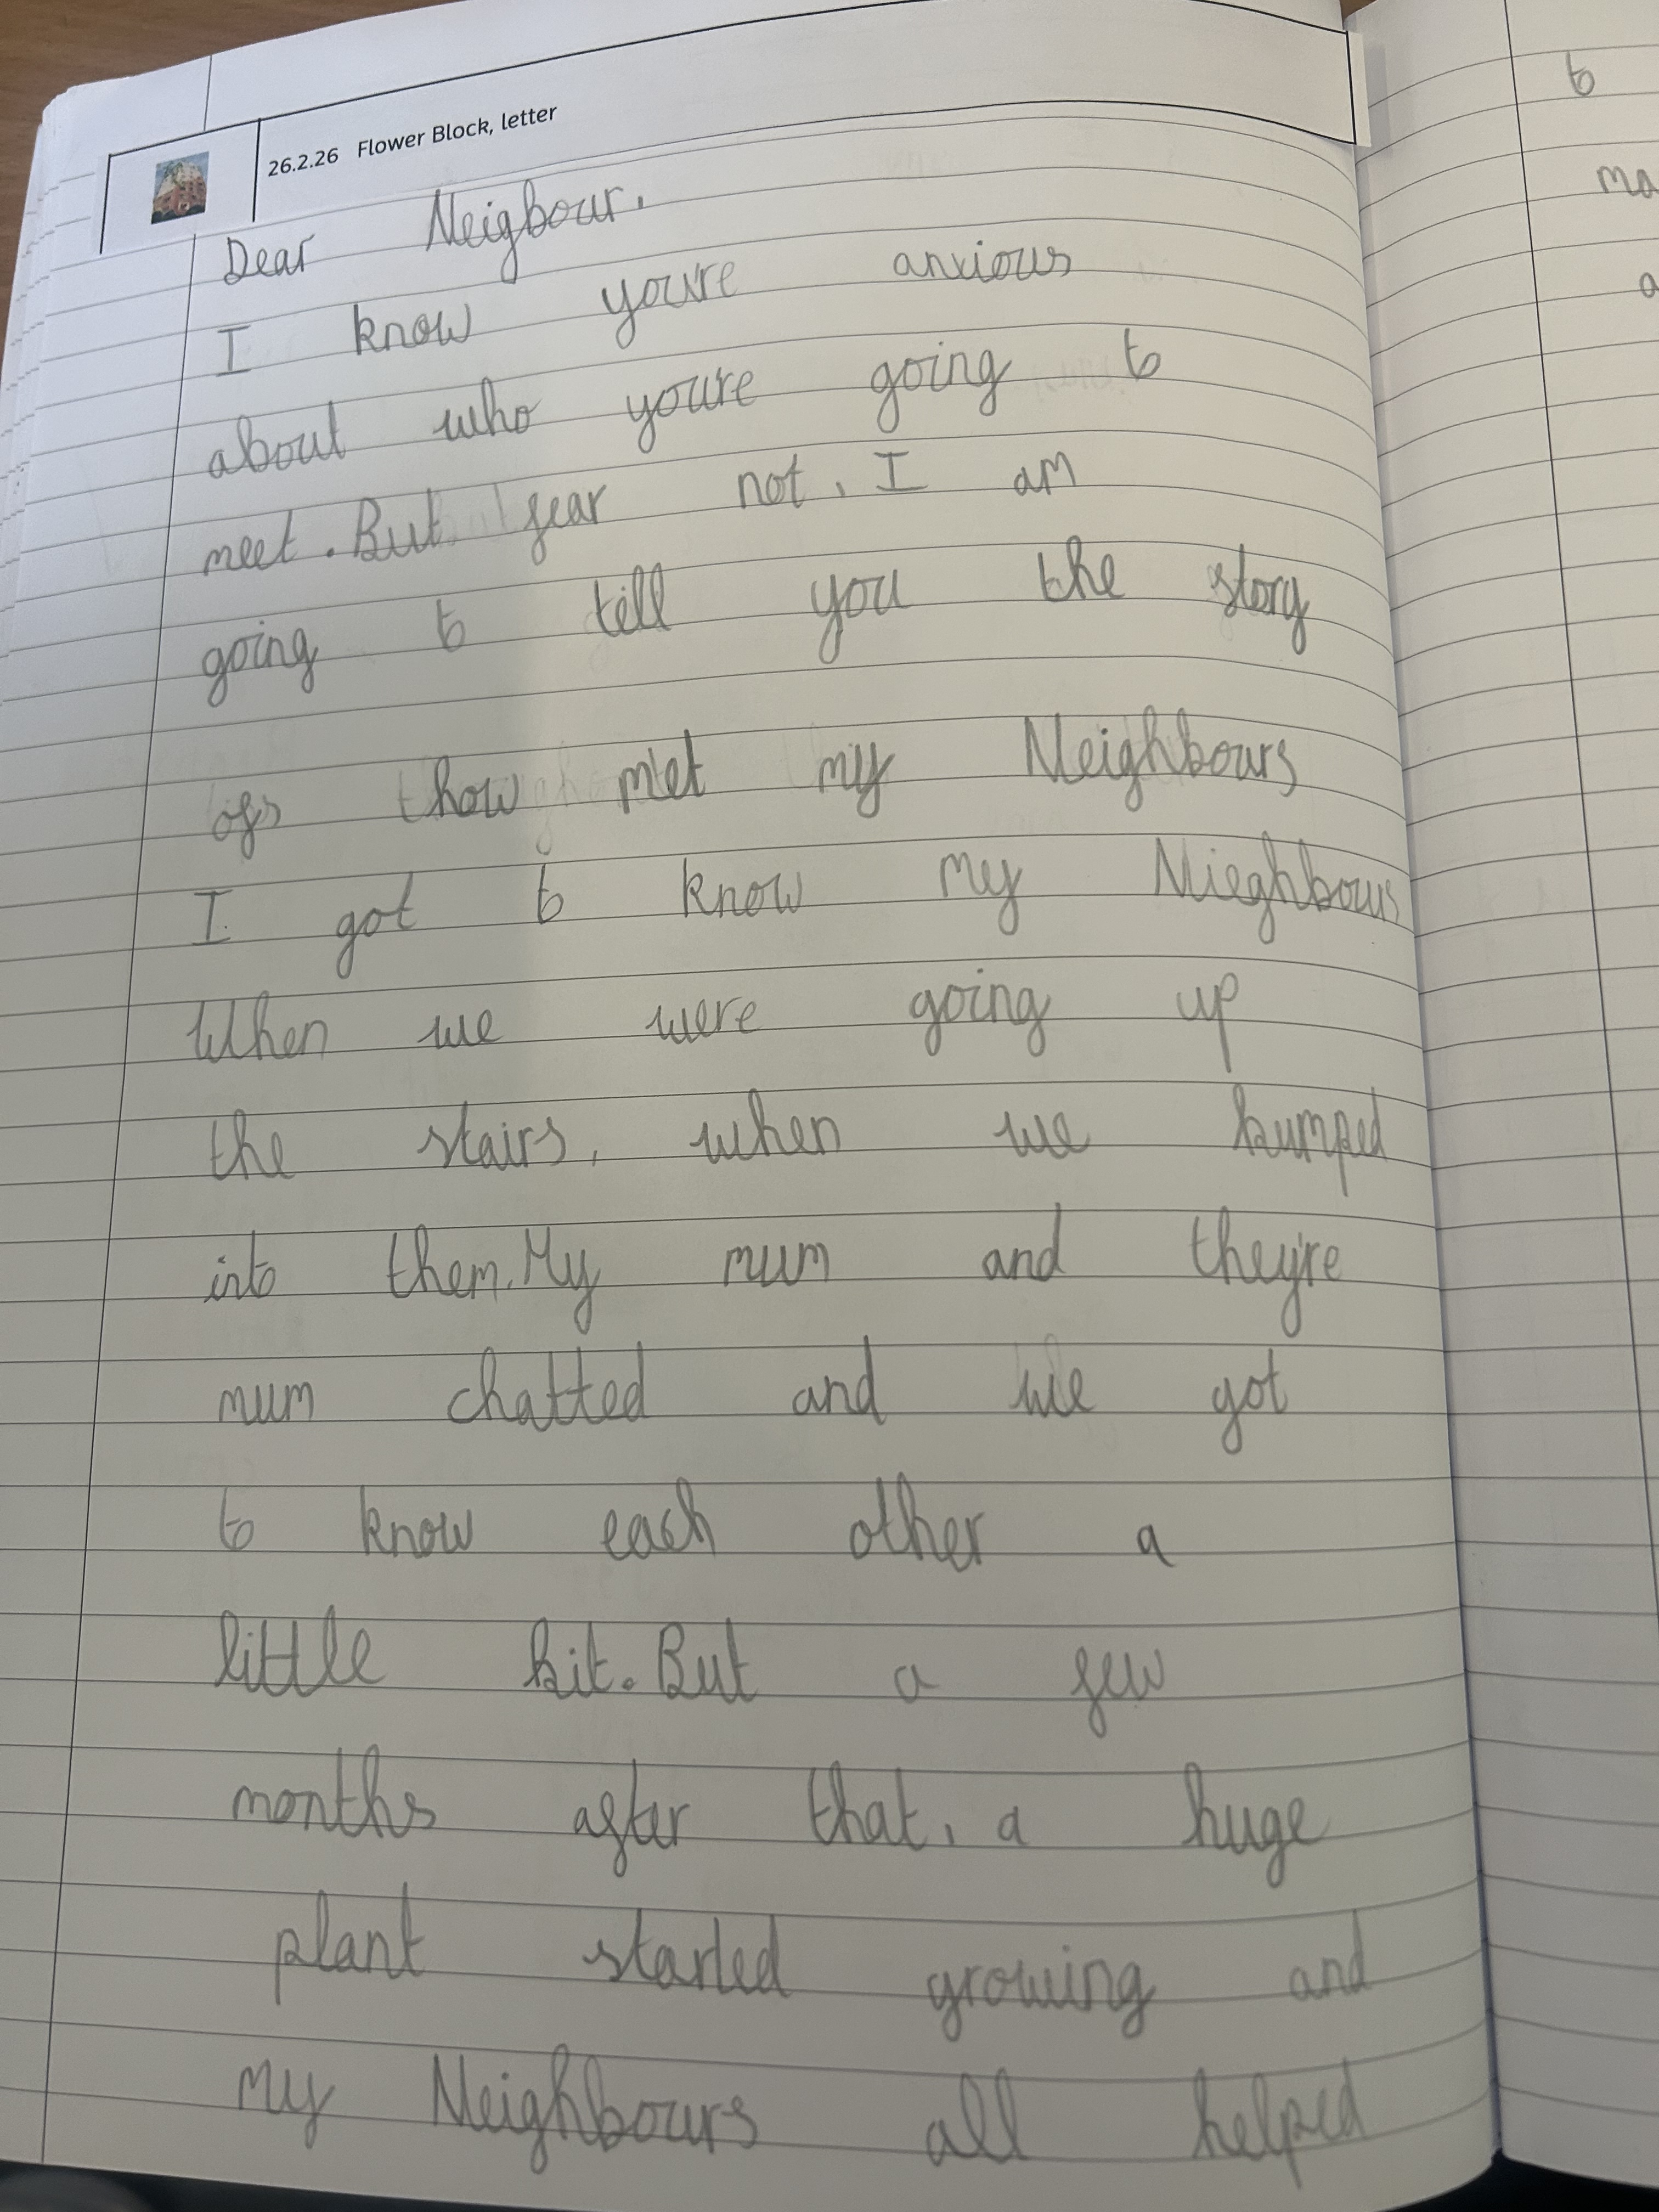 26.2.26 Flower Block, letter
Dear Neigbour,
I know you're anxious
about who you're going to
meet. But fear not, I am
going to tell you the story
of how met my Neighbours
I got to know my Nieghbours
When we were going up
the stairs, when we bumped
into them. My mum and they're
mum chatted and we got
to know each other a
little bit. But a few
months after that, a huge
plant started growing and
my Neighbours all helped
to
ma
a